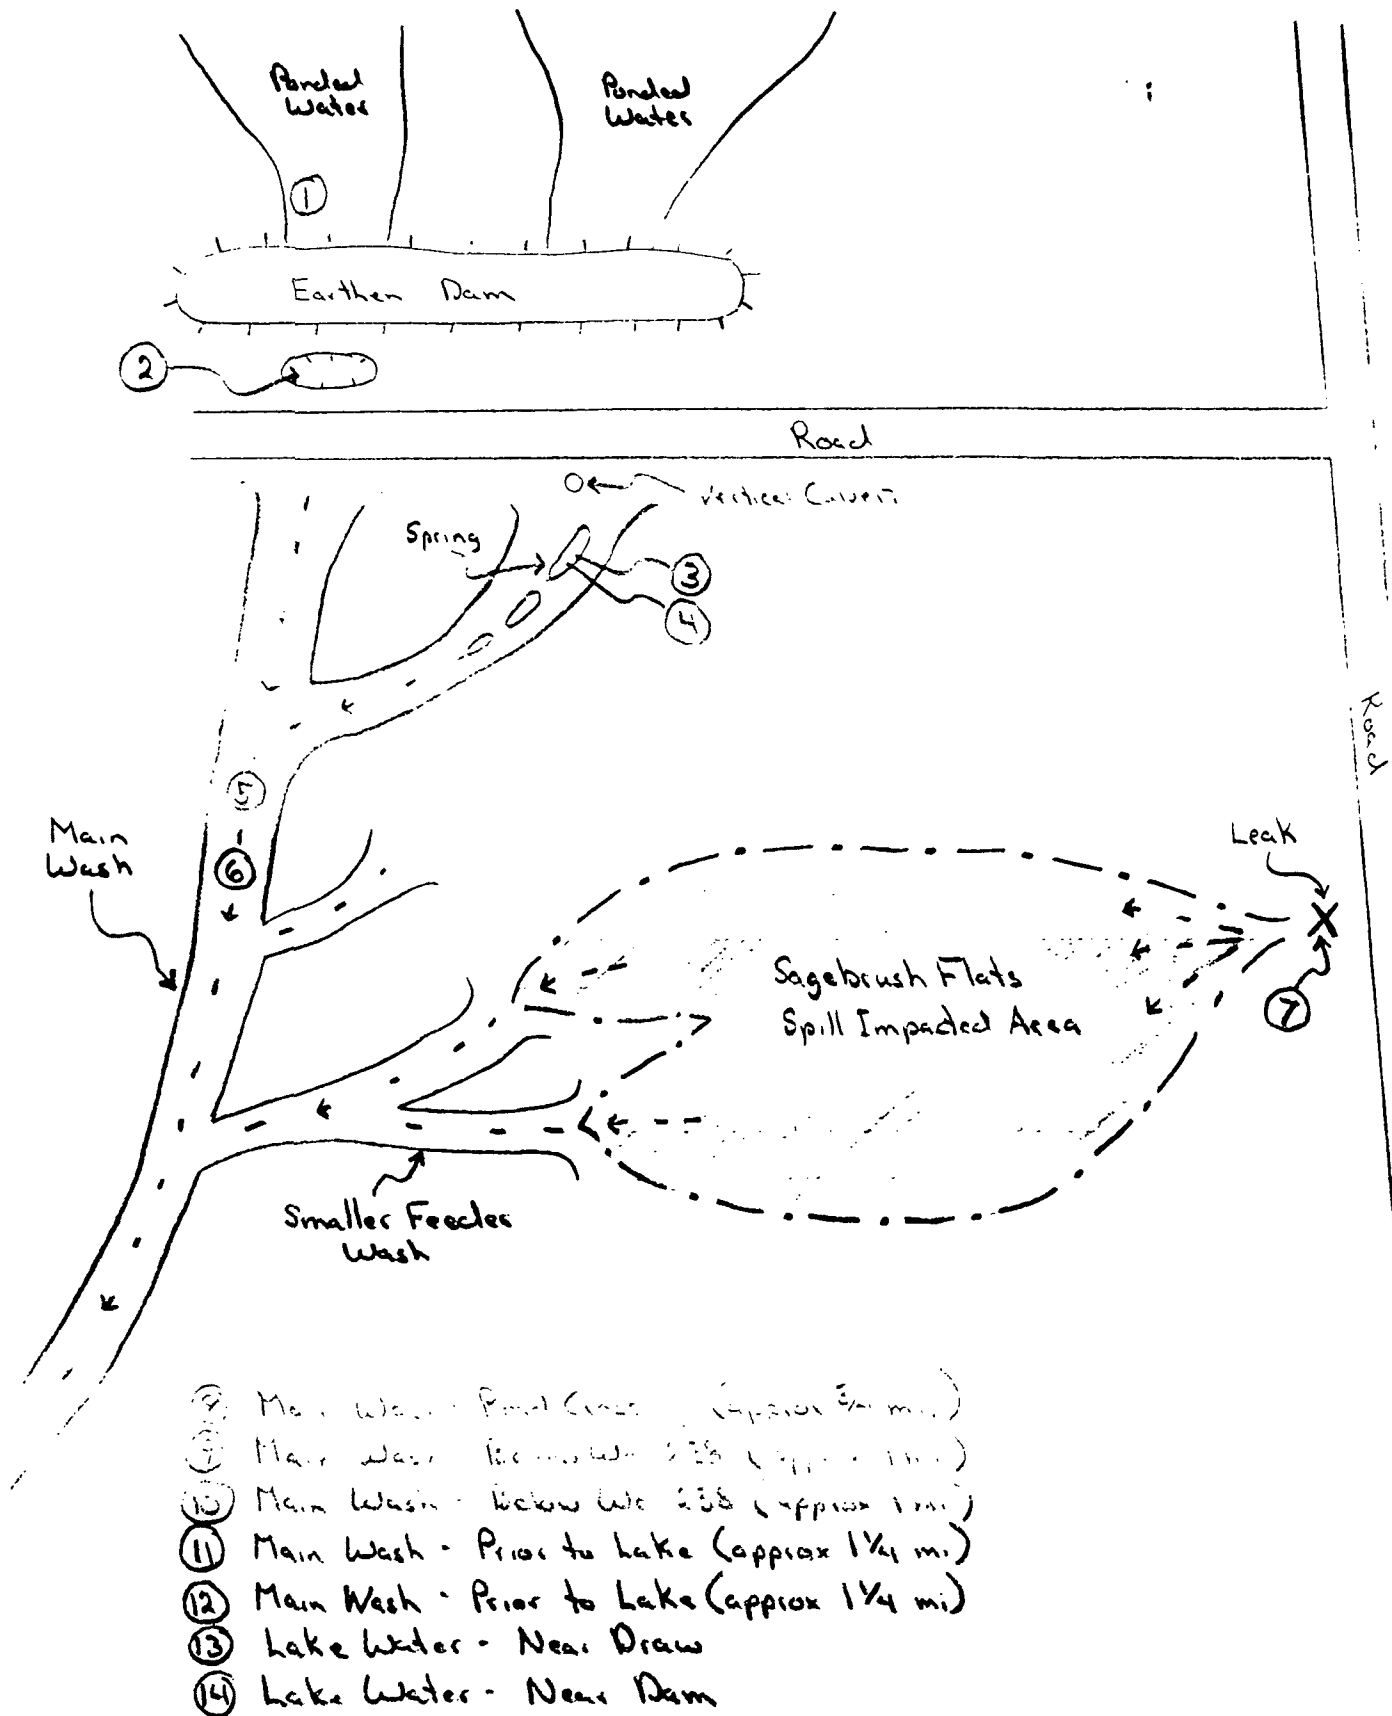 Ponded
Water
Ponded
Water
1
Earthen Dam
2
Road
Vertical Culvert
Spring
3
4
Road
5
Main
Wash
6
Leak
Sagebrush Flats
Spill Impacted Area
7
Smaller Feeder
Wash
8 Main Wash - (approx 3/4 mi)
9 Main Wash -
10 Main Wash - Below (approx 1 mi)
11 Main Wash - Prior to Lake (approx 1 1/4 mi)
12 Main Wash - Prior to Lake (approx 1 1/4 mi)
13 Lake Water - Near Draw
14 Lake Water - Near Dam